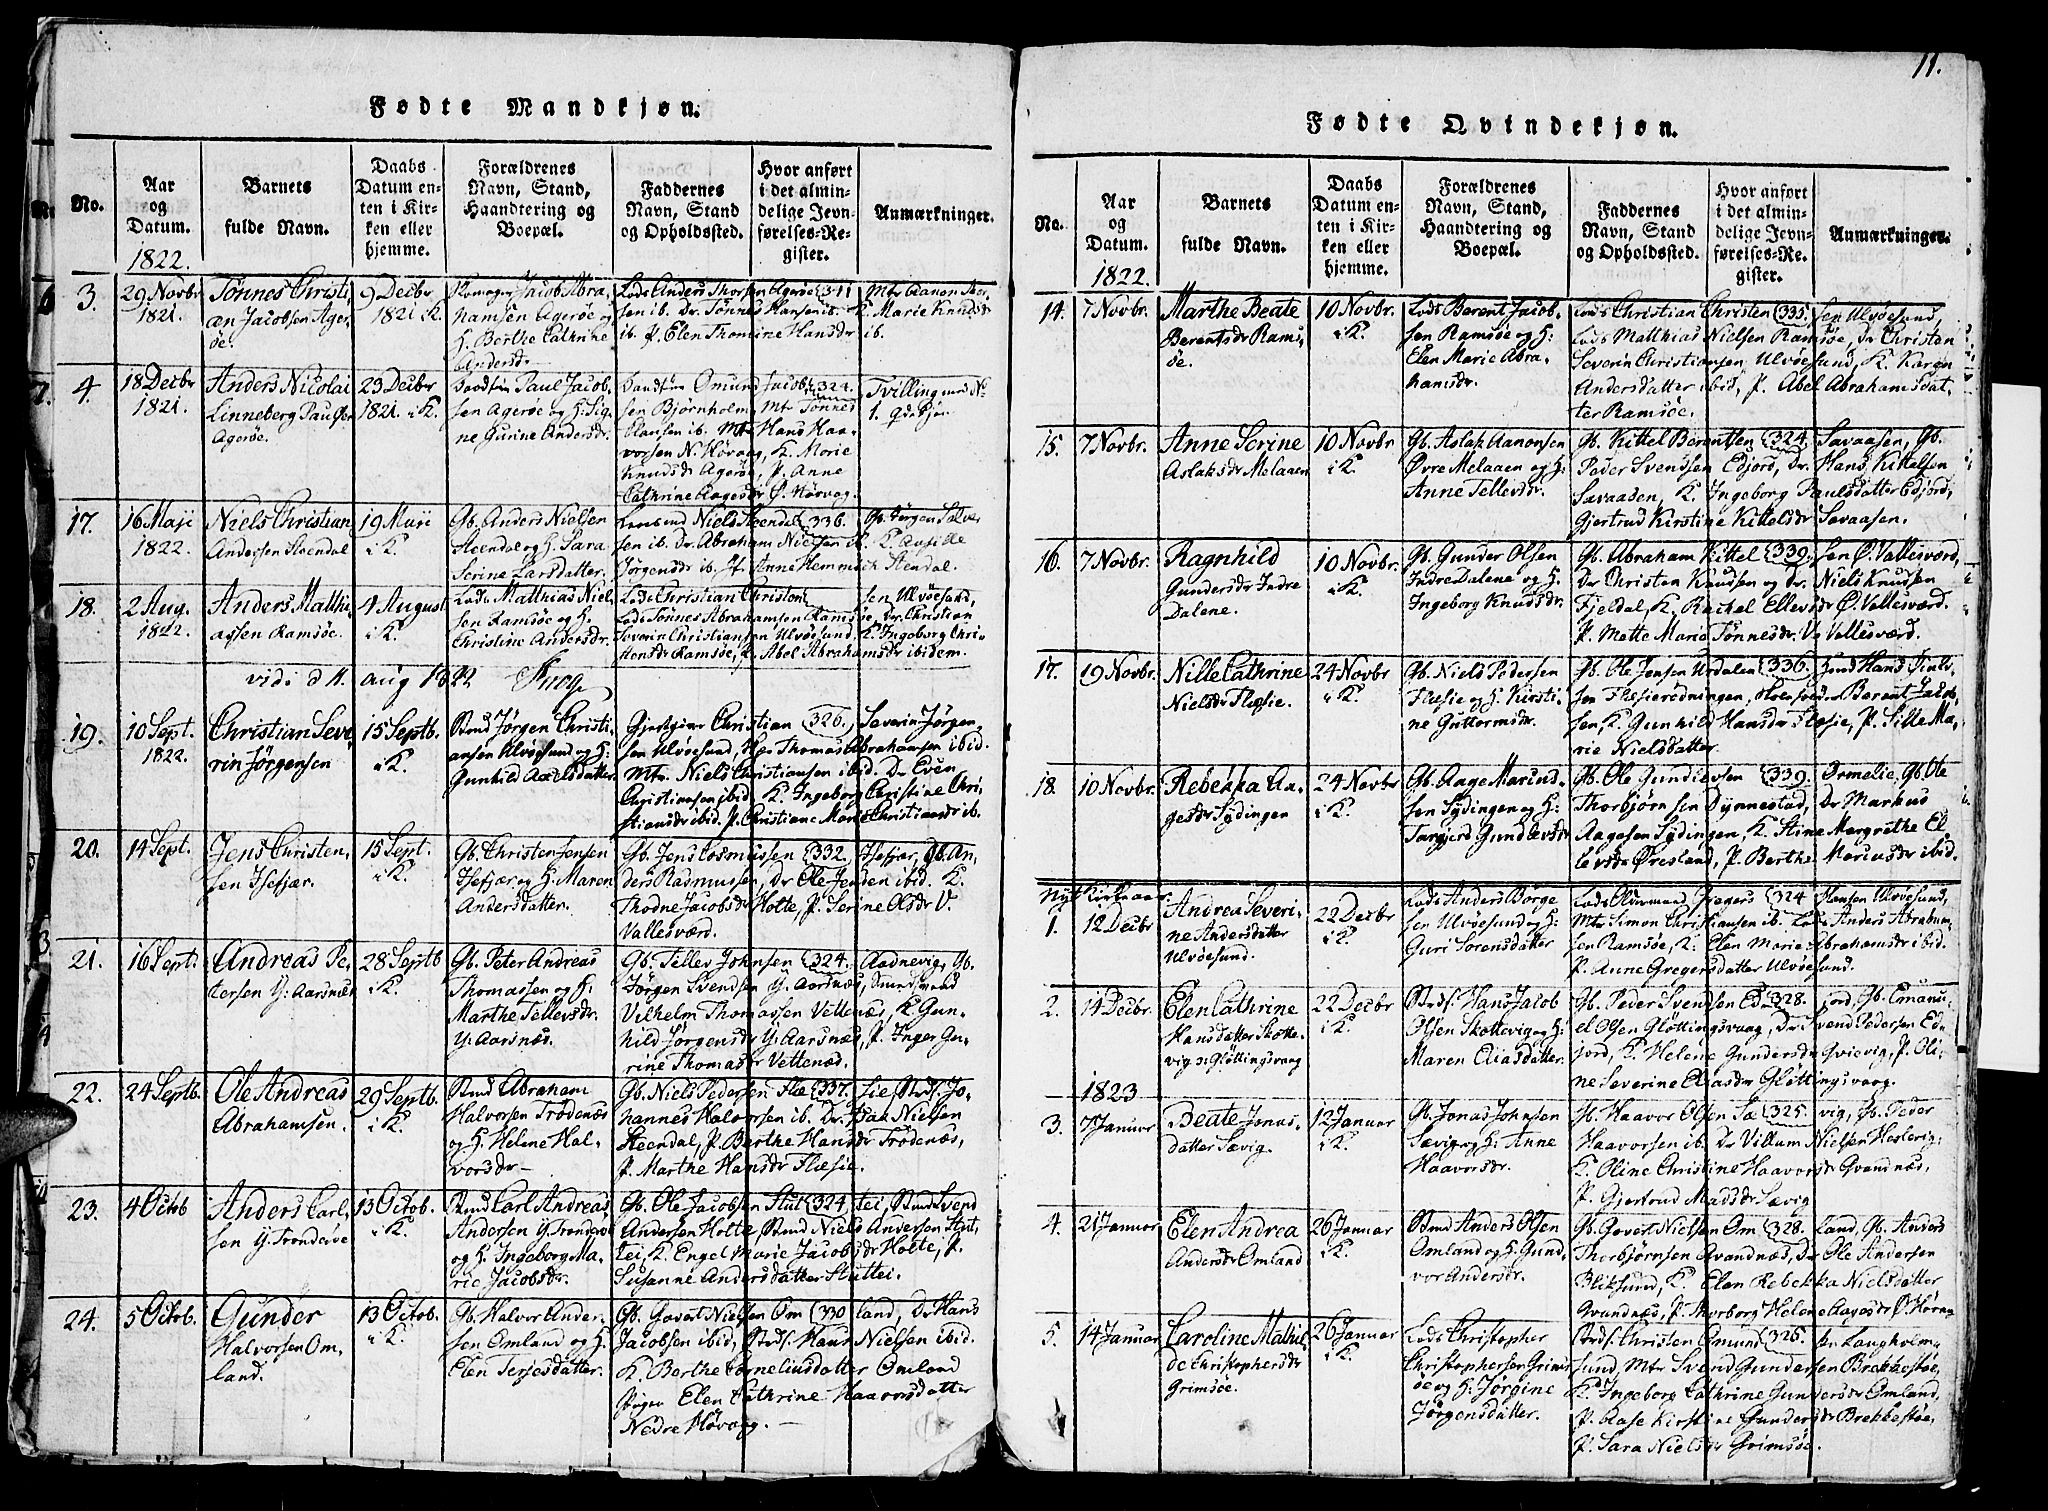 11.
Fødte Mandkjøn.
No.
Aar og Datum.
Barnets fulde Navn.
Daabs Datum enten i Kirken eller hjemme.
Forældrenes Navn, Stand, Haandtering og Boepæl.
Faddernes Navn, Stand og Opholdssted.
Hvor anført i det almindelige Jevnførelses-Register.
Anmærkninger.
1822.
3.
29 Novbr
1821.
Tønnes Christi
an Jacobsen Ager
øe.
9 Decbr
1821 i K.
Jacob Abra
hamsen Agerøe og
H. Berthe Cathrine
Andersd.
Lods Anders Thorsen Agerøe 341
sen ib. Dr. Tønnes Hansen ib. K. Marie Knudsdr
ib P. Elen Thomine Hansdr ib.
4.
18 Decbr
1821.
Anders Nicolai
Linneberg Paulsen
Agerøe.
23 Decbr
1821. i K.
Paul Jacob
sen Agerøe og H: Sig
ne Gunne Andersdr.
Omund Jacob 324.
sen Bjørnholm Mtr Tønnes
Hansen ib. Mtr Hans Haa
vorsen N. Høvaag, K. Marie
Knudsdr Agerøe, P. Anne
Cathrine Aagesdr Ø. Hørvag.
Tvilling med No
1. Qvdekjøn
17.
16 Maji
1822.
Niels Christian
Andersen Steendal
19 Maji
i K.
Gb. Anders Nielsen
Steendal og H. Sara
Serine Larsdatter.
Niels Steendal 336. Gb. Jørgen Salve
sen ib. Dr. Abraham Nielsen ib K.
Jørgensdr ib. P. Anne Stendal.
18.
2 Aug.
1822.
Anders Matthi
assen Ramsøe.
4 August
i K.
Lods Matthias Niel
sen Ramsøe og H.
Christine Andersdr.
Lods Christian Christen sen Ulvøesund,
Lods Tønnes Abrahamsen Ramsøe, Dr. Christian
Severin Christiansen Ulvøesund K. Ingeborg Chri
stensdr Ramsøe, P. Abel Abrahamsdr ibidem.
vidi d 11. aug 1822
19.
10 Sept.
1822.
Christian Seve
rin Jørgensen
15 Septb.
i K.
Jørgen Christi
ansen Ulvøesund og H:
Gunhild Axelsdatter
Gjestgiver Christian 326. Severin Jørgen
sen Ulvøesund, Thomas Abrahamsen ibid.
Mtr. Niels Christiansen ibid. Dr Even
Christiansen ibid. K. Ingeborg Christine Chri
stiansdr ibid. P. Christiane Marie Christiansdr ib.
20.
14 Sept.
Jens Christen
sen Isefjær.
15 Sept.
i K.
Gb. Christen Jensen
Isefjær og H. Maren
Andersdatter.
Gb. Jens Rasmussen 332. Isefjær, Gb. An
ders Rasmussen, Dr Ole Jensen ibid. K.
Thodne Jacobsdr Holte, P. Serine Olsdr V.
Vallesværd.
21.
16 Sept.
Andreas Pe
tersen Y: Aarsnæs
28 Septb
i K.
Gb. Peter Andreas
Thomassen og H.
Marthe Tellevsdr.
Y. Aarsnæs.
Gb. Tellev Johnsen 324. Aadnevig, Gb.
Jørgen Svendsen Y. Aarsnæs,
Vilhelm Thomassen Vettenæs, K. Gun
hild Jørgensdr Y: Aarsnæs, P. Inger Ca
rine Thomasdr Vettenæs.
22.
24 Septb.
Ole Andreas
Abrahamsen.
29 Septb.
i K.
Abraham
Halvorsen Trødenæs
og H. Helene Hal
vorsdr
Gb. Niels Pedersen Flæ 337. sie, Jo
hannes Halvorsen ib. Dr. Isak Nielsen
Steendal, P. Berthe Hansdr Trødenæs,
P. Marthe Hansdr Flæsie.
23.
4 Octob
Anders Carl
sen Y. Tronderøe
13 Octob.
i K.
Carl Andreas
Andersen Y. Tronderøe
og H. Ingeborg Ma
rie Jacobsdr.
Gb. Ole Jacobsen Stut 324. tei, Svend
Andersen Holte Niels Andersen Stut
tei, K. Engel Marie Jacobsdr Holte, P.
Susanne Andersdatter Stuttei.
24.
5 Octob.
Gunder
Halvorsen Om
land.
13 Octob.
i K.
Gb. Halvor Ander
sen Omland og H.
Elen Terjesdatter.
Gb. Govert Nielsen Om 330 land, Dr Hans
Jacobsen ibid, Hans Nielsen ibid.
K. Berthe Corneliusdatter Omland
Piger Elen Cathrine Haavorsdatter
Nedre Høvaag. —
Fødte Qvindekjøn.
No.
Aar og Datum.
Barnets fulde Navn.
Daabs Datum enten i Kirken eller hjemme.
Forældrenes Navn, Stand, Haandtering og Boepæl.
Faddernes Navn, Stand og Opholdssted.
Hvor anført i det almindelige Jevnførelses-Register.
Anmærkninger.
1822.
14.
7 Novbr.
Marthe Beate
Berentsdr Rams
øe.
10 Novbr
i K.
Lods Berent Jacob
sen Ramsøe og H:
Elen Marie Abra
hamsdr.
Lods Christian Christen 335. sen Ulvøesund,
Lods Matthias Nielsen Ramsøe, Dr Christen
Severin Christiansen Ulvøesund, K. Karen
Andersdatter ibid, P. Abel Abrahamsdat
ter Ramsøe.
15.
7 Novbr.
Anne Serine
Aslaksdr Melaaen
10 Novbr
i K.
Gb. Aslak Aanonsen
Øvre Melaaen og H:
Anne Tellevsdr.
Gb. Kittel Berentsen 324. Savaasen, Gb.
Peder Svendsen Edjord, Dr. Hans Kittelsen
Savaasen, K. Ingeborg Paulsdatter Edjord,
Gjertrud Kirstine Kittelsdr Savaasen.
16.
7 Novbr.
Ragnhild
Gundersdr Indre
Dalene.
10 Novbr.
i K.
Gb. Gunder Olsen
Indre Dalene og H.
Ingeborg Knudsdr.
Gb. Abraham Kittel 339. sen Ø. Vallesværd,
Dr Christen Knudsen og Dr. Niels Knudsen
Fjeldal, K. Rachel Ellevsdr Ø. Vallesværd.
P. Mette Marie Tønnesdr V. Vallesværd.
17.
19 Novbr.
Nille Cathrine
Nielsdr Flæsie.
24 Novbr
i K.
Gb. Niels Pedersen
Flæsie og H. Kirsti
ne Guttormsdr.
Gb. Ole Jensen Urdalen 336.
sen Flæsierødningen, Berent Jacob
sen, K. Gunhild Hansdr Flæsie, P. Sille Ma
rie Nielsdatter.
18.
10 Novbr.
Rebekka Aa
gesdr Sydingen
24 Novbr
i K.
Gb. Aage Marcus
sen Sydingen og H:
Targjerd Gundersdr
Gb. Ole Gundersen 339. Ormelie, Gb. Ole
Thorbjørnsen Dynnestad, Dr Markus
Aagesen Sydingen, K. Stine Margrethe El
levsdr Øresland, P. Berthe Mariusdr ibid.
Nyt Kirkeaar.
1.
12 Decbr
Andrea Severi
ne Andersdatter
Ulvøesund.
22 Decbr
i K.
Lods Anders Børge
sen Ulvøesund og H.
Guri Sørensdatter
Lods Gregers 324 Hansen Ulvøesund,
Mtr Simon Christiansen ib. Lods Anders Abraham
sen Ramsøe, K. Elen Marie Abrahamsdr ibid.
P. Anne Gregersdatter Ulvøesund.
2.
14 Decbr.
Elen Cathrine
Hansdatter Skotte
vig v: Gløttingsvaag
22 Decbr
i K.
Hans Jacob
Olsen Skottevig og H.
Maren Eliasdatter.
Gb. Peder Svendsen Ed 328. jord, Gb. Emanu
el Olsen Gløttingsvaag, Dr. Svend Pedersen Ed
jord, K. Helene Gundersdr Qvievig, P. Oli
ne Severine Eliasdr Gløttingsvaag.
1823
3.
7 Januar
Beate Jonas
datter Sævig.
12 Januar
i K.
Gb. Jonas Johnsen
Sævig og H: Anne
Haavorsdr.
Gb. Haavor Olsen Sæ 325. vig, Gb. Peder
Haavorsen ib. Dr Villum Nielsen Heslevig,
K. Oline Christine Haavorsdr Qvandnæs,
P. Gjertrud Madsdr Sævig
4.
21 Januar
Elen Andrea
Andersdr Omland
26 Januar
i K.
Anders Olsen
Omland og H. Gund
vor Andersdr.
Gb. Govert Nielsen Om 328. land, Gb. Anders
Thorbjørnsen Qvandnæs, Dr Ole Andersen
Bliksund, K. Elen Rebekka Nielsdatter
Qvandnæs, P. Thorborg Helene Aagesdr Ø. Hørvag
5.
14 Januar
Caroline Mathil
de Christophersdr
Grimsøe.
26 Januar
i K.
Lods Christopher
Christophersen Grims
øe og H. Jørgine
Jørgensdatter.
Christen Omund 326. sen Langholm
sund, Mtr Svend Gundersen Brekkestøe,
K. Ingeborg Cathrine Gundersdr Omland,
P. Aase Kirstine Gundersdr Brekkestøe,
P. Sara Nielsdr Grimsøe.